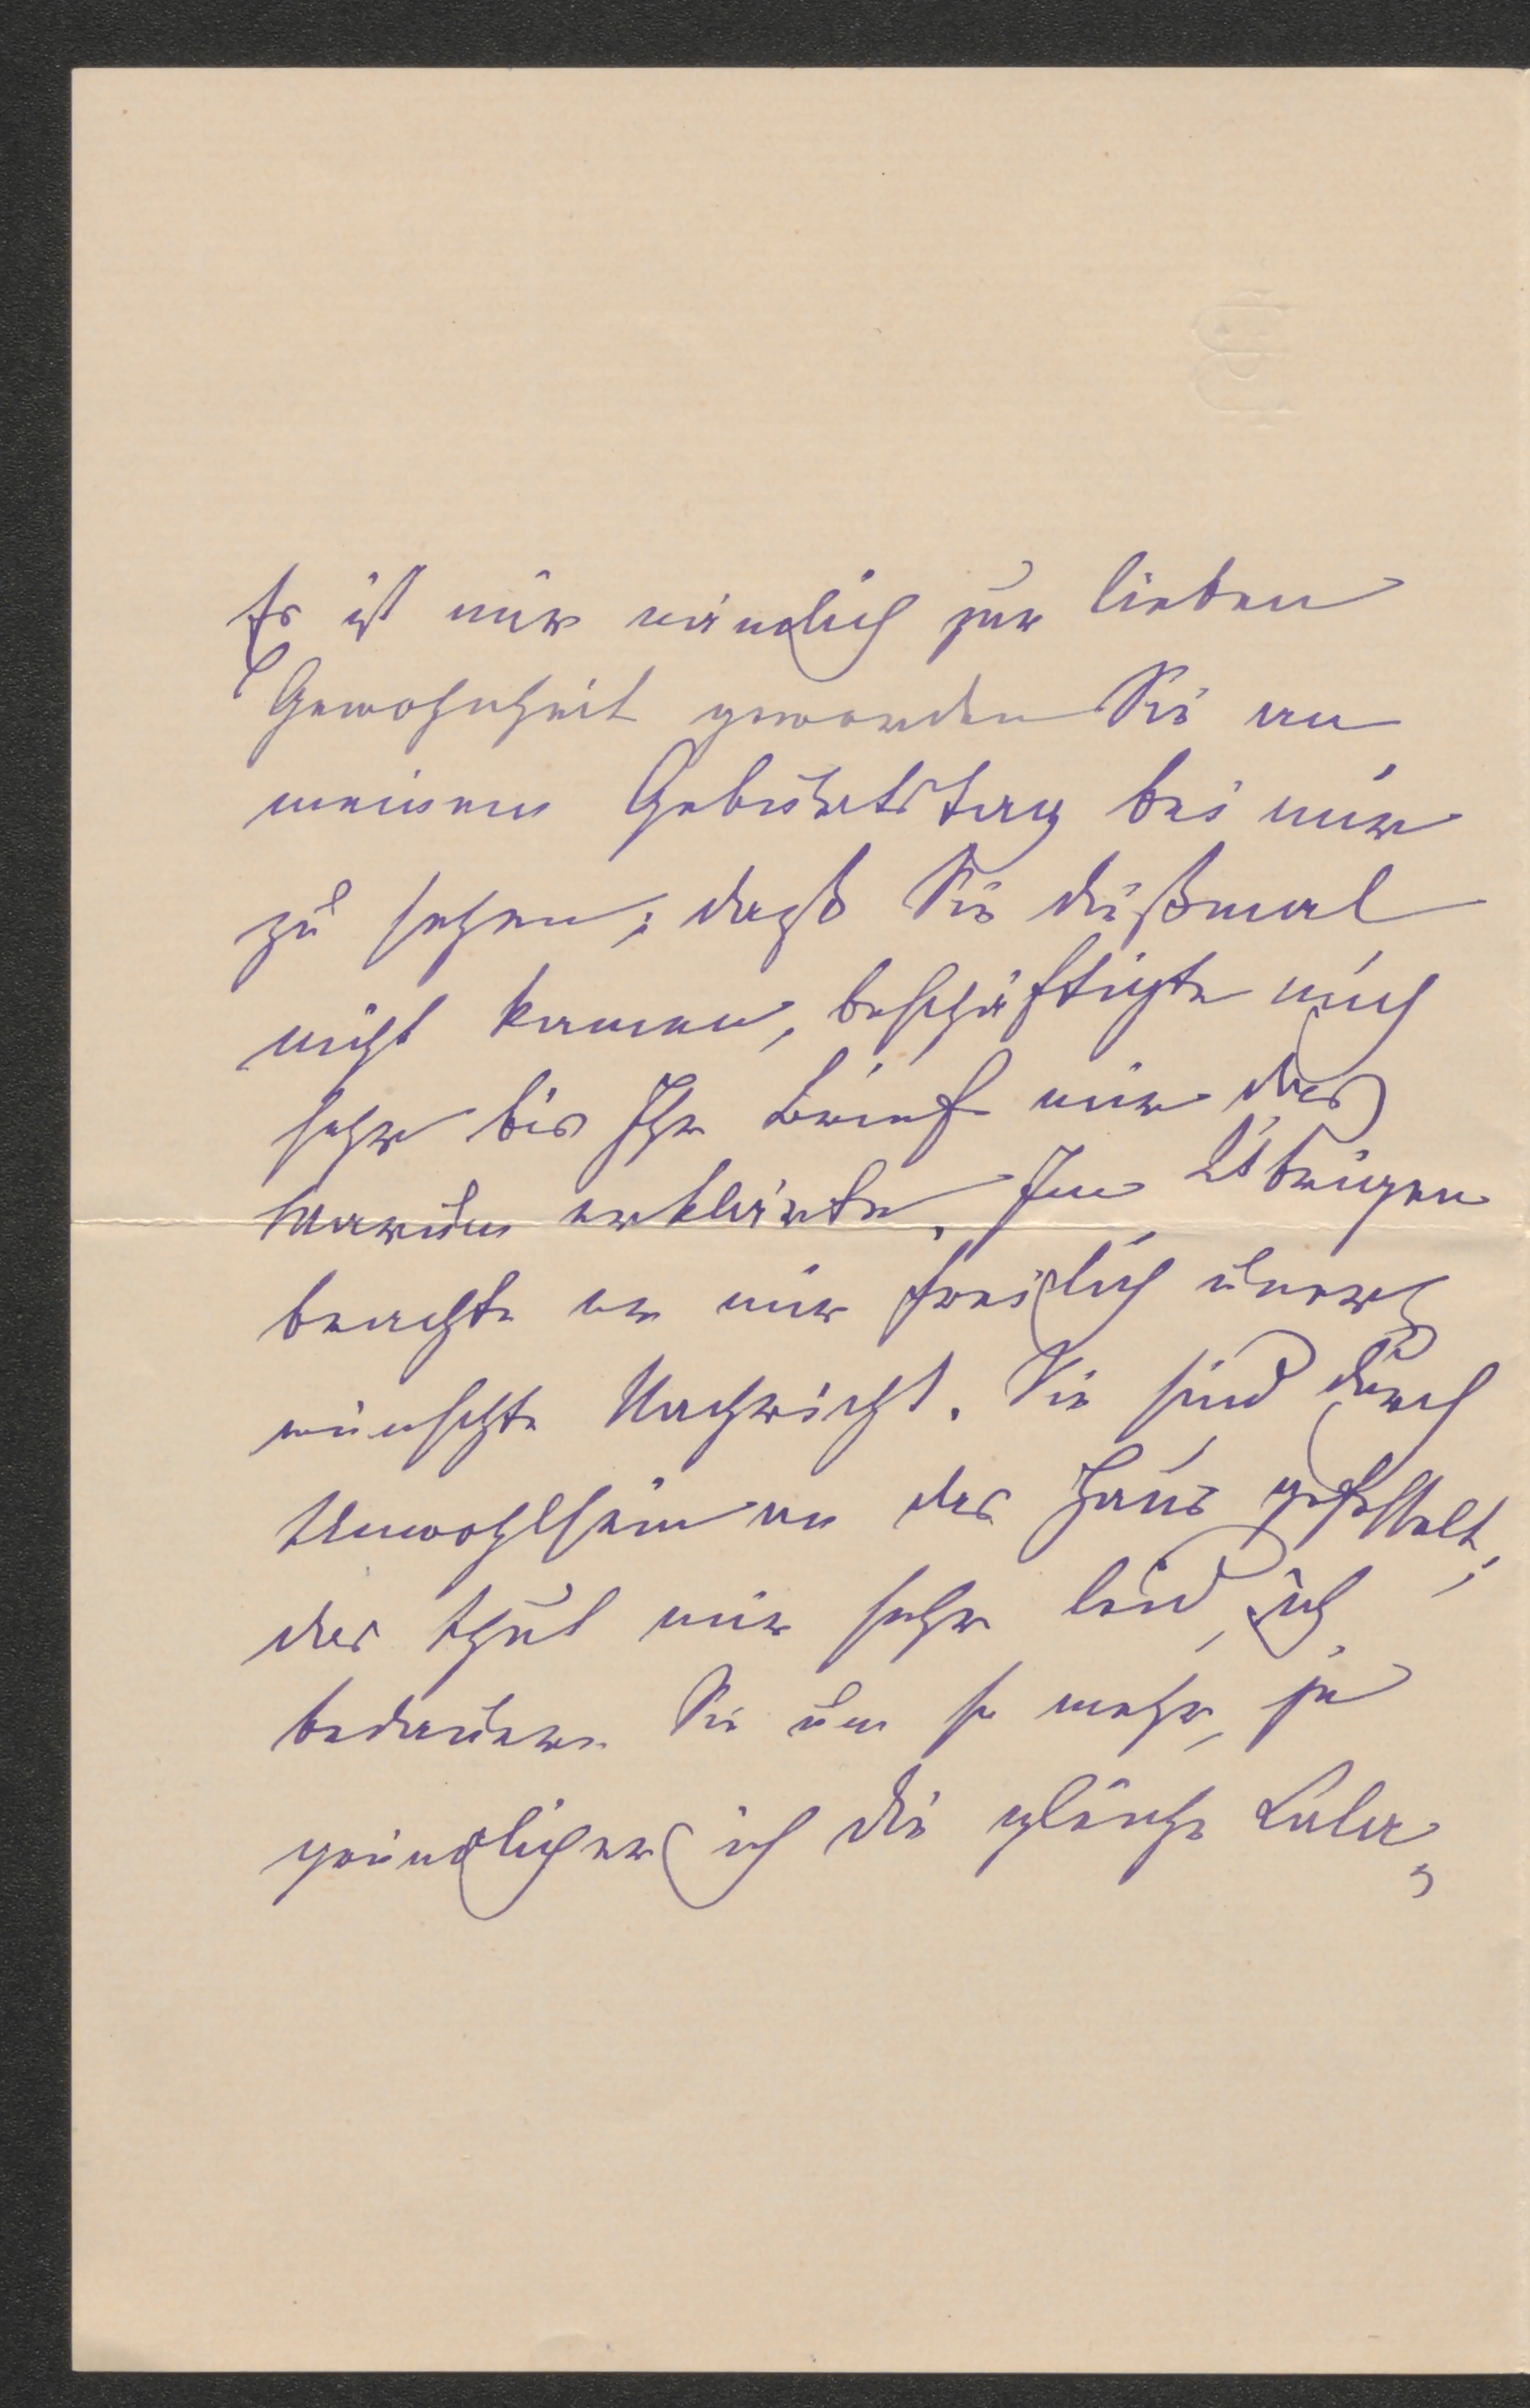 Es ist mir nämlich zur lieben
Gewohnheit geworden Sie an
meinem Geburtstag bei mir
zu sehen; daß Sie dießmal
nicht kamen, beschäftigte mich
sehr bis Ihr Brief mir das
Warum erklärte. Im Übrigen
brachte er mir freilich uner=
wünschte Nachricht. Sie sind durch
Unwohlsein an das Haus gefesselt,
das thut mir sehr leid, ich
bedauere Sie um so mehr, je
gründlicher ich die gleiche